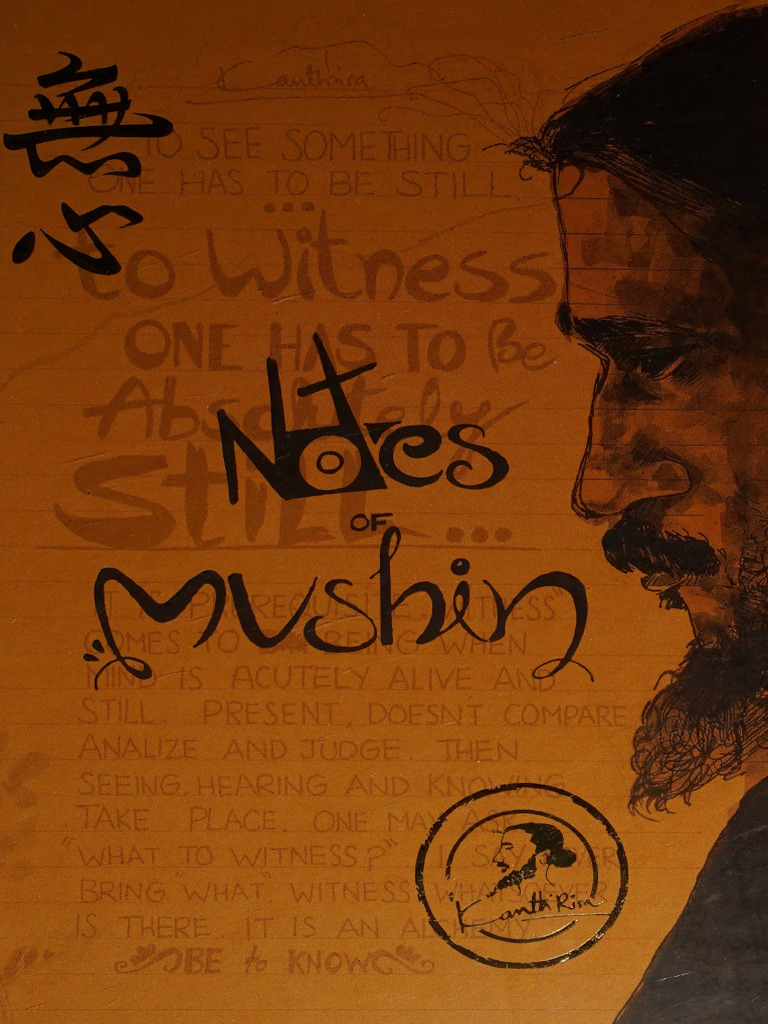 無心
TO SEE SOMETHING
ONE HAS TO BE STILL
...
to Witness
ONE HAS TO Be
Absolutely
Still...
Notes
OF
mushin
IT IS PREREQUISITE. "WITNESS"
COMES TO BEING WHEN
MIND IS ACUTELY ALIVE AND
STILL. PRESENT, DOESN'T COMPARE
ANALIZE AND JUDGE. THEN
SEEING, HEARING AND KNOWING
TAKE PLACE. ONE MAY ASK
"WHAT TO WITNESS?" I SAY NEVER
BRING "WHAT" WITNESS WHATSOEVER
IS THERE. IT IS AN ALCHEMY.
BE to KNOW
Kanthi Risa